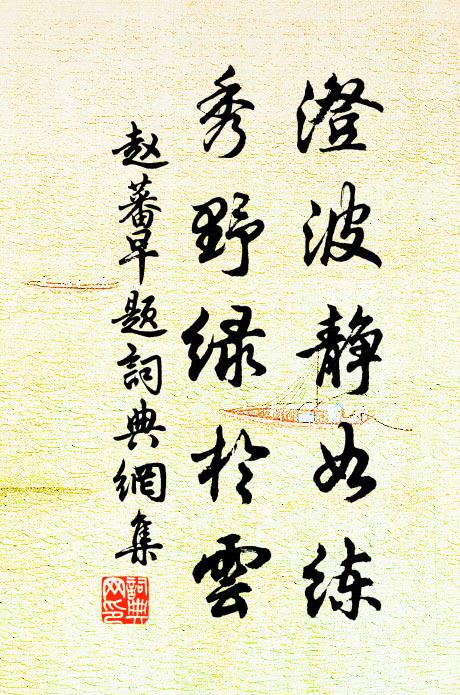 澄波静如练
秀野绿於雲
赵蕃早题詞典網集
詞典
网印